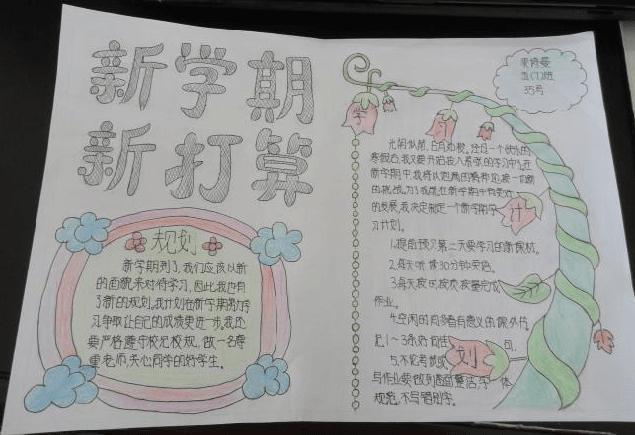 新学期
新打算
规划
新学期到了,我们应该以新
的面貌来对待学习,因此,我也有
了新的规划,我计划在新学期努力学
习,争取让自己的成绩更进一步,我还
要严格遵守校纪校规,做一名尊
重老师,关心同学的好学生。
五(1)班
35号
学
习
计
划
光阴似箭,日月如梭,经过一个快乐的
寒假后,我又要开始投入紧张的学习中,在
新学期中,我将以饱满的精神迎接一切新
的挑战,为了我能在新学期中有更好
的发展,我决定制定一个新学期学
习计划。
1.提前预习第二天要学习的新课程。
2.每天听读30分钟英语。
3.每天按时按质按量完成
作业。
4.空闲时间多看有意义的课外书,
记1~3条好词佳句。
5.不论考试或
写作业要做到卷面整洁,字体
规范,不写错别字。